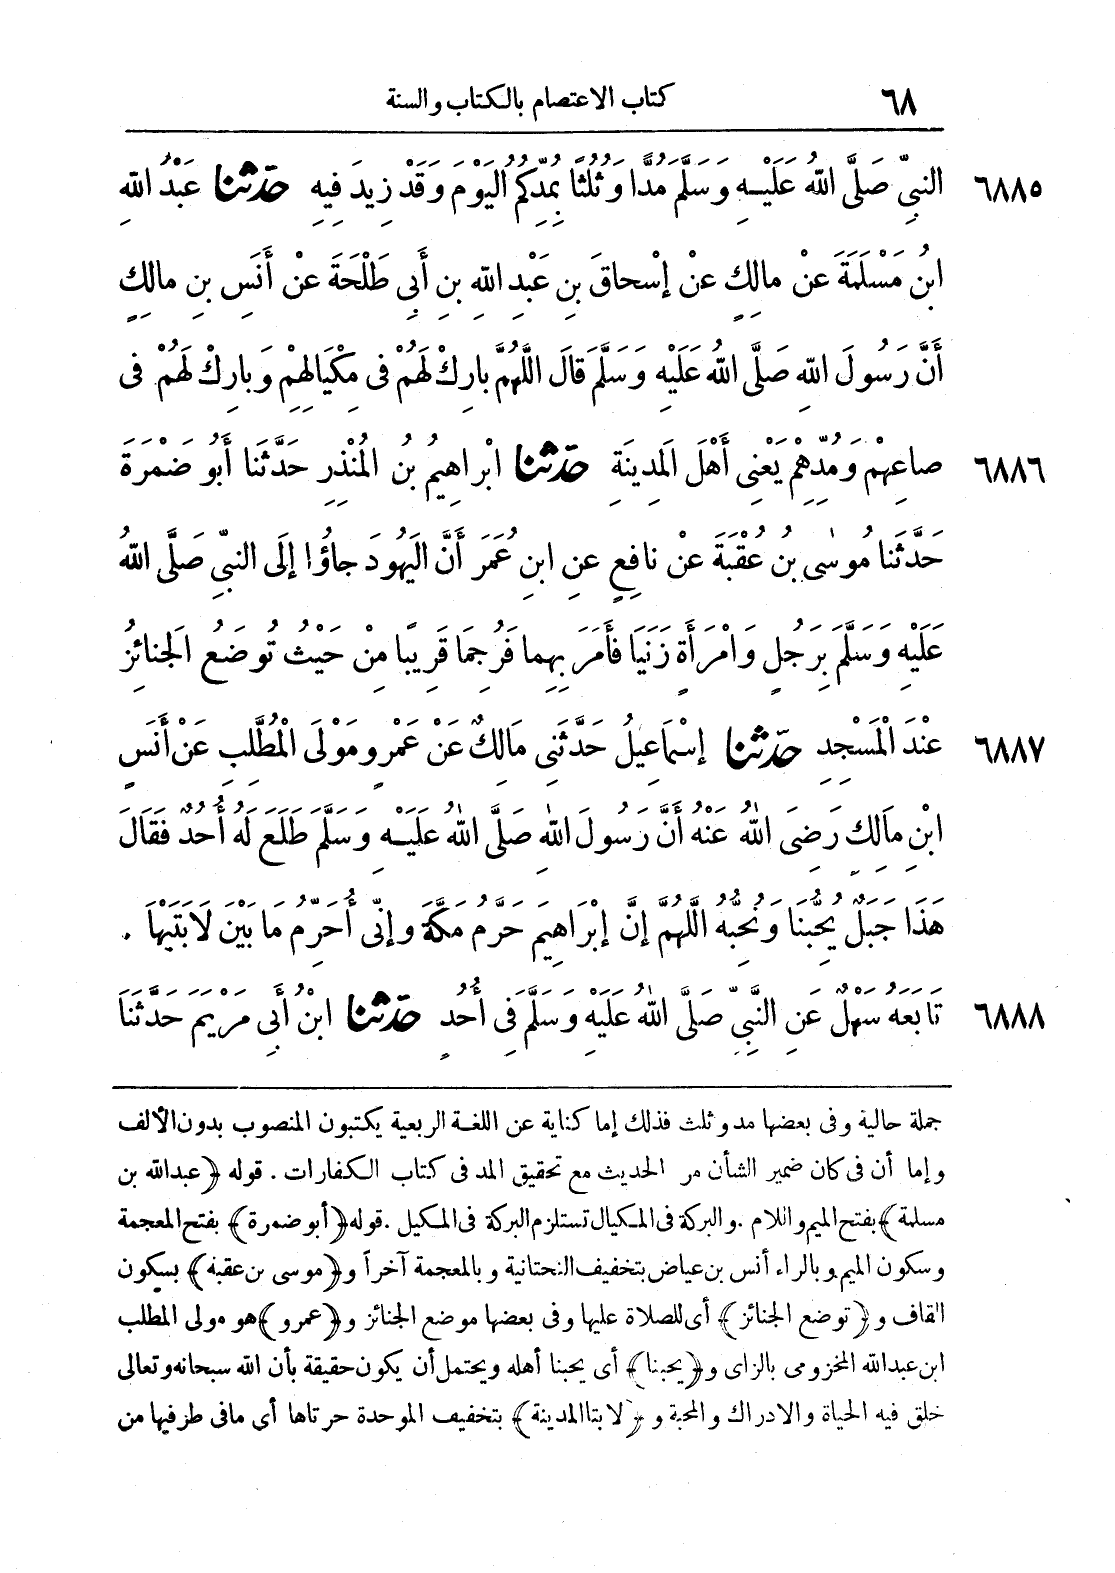 ٦٨ كتاب الاعتصام بالكتاب والسنة
٦٨٨٥ النَّبِيِّ صَلَّى اللهُ عَلَيْهِ وَسَلَّمَ مُدًّا وَثُلُثًا بِمُدِّكُمُ الْيَوْمَ وَقَدْ زِيدَ فِيهِ حَدَّثَنَا عَبْدُ اللهِ
ابْنُ مَسْلَمَةَ عَنْ مالِكٍ عَنْ إِسْحاقَ بنِ عَبْدِ اللهِ بنِ أَبِي طَلْحَةَ عَنْ أَنَسِ بنِ مالِكٍ
أَنَّ رَسُولَ اللهِ صَلَّى اللهُ عَلَيْهِ وَسَلَّمَ قالَ اللَّهُمَّ بارِكْ لَهُمْ فى مِكْيَالِهِمْ وَبارِكْ لَهُمْ فى
٦٨٨٦ صاعِهِمْ وَمُدِّهِمْ يَعْنِى أَهْلَ المَدِينَةِ حَدَّثَنَا ابْراهِيمُ بنُ المُنْذِرِ حَدَّثَنا أَبُو ضَمْرَةَ
حَدَّثَنا مُوسٰى بنُ عُقْبَةَ عَنْ نافِعٍ عنِ ابنِ عُمَرَ أَنَّ اليَهُودَ جاؤُا إلَى النبيِّ صَلَّى اللهُ
عَلَيْهِ وَسَلَّمَ بِرَجُلٍ وَامْرَأَةٍ زَنَيَا فَأَمَرَ بِهِما فَرُجِمَا قَرِيبًا مِنْ حَيْثُ تُوضَعُ الجَنائِزُ
٦٨٨٧ عِنْدَ الْمَسْجِدِ حَدَّثَنَا إِسْمَاعِيلُ حَدَّثَنِى مَالِكٌ عَنْ عَمْرٍو مَوْلَى الْمُطَّلِبِ عَنْ أَنَسِ
ابْنِ مَالِكٍ رَضِىَ اللهُ عَنْهُ أَنَّ رَسُولَ اللهِ صَلَّى اللهُ عَلَيْهِ وَسَلَّمَ طَلَعَ لَهُ أُحُدٌ فَقَالَ
هَذَا جَبَلٌ يُحِبُّنَا وَنُحِبُّهُ اللَّهُمَّ إِنَّ إِبْرَاهِيمَ حَرَّمَ مَكَّةَ وإِنِّى أُحَرِّمُ مَا بَيْنَ لَابَتَيْهَا .
٦٨٨٨ تَابَعَهُ سَهْلٌ عَنِ النَّبِيِّ صَلَّى اللهُ عَلَيْهِ وَسَلَّمَ فِى أُحُدٍ حَدَّثَنَا ابْنُ أَبِى مَرْيَمَ حَدَّثَنَا
جملة حالية وفى بعضها مد وثلث فذلك إما كناية عن اللغة الربعية يكتبون المنصوب بدون الألف
وإما أن فى كان ضمير الشأن مر الحديث مع تحقيق المد فى كتاب الكفارات . قوله ﴿عبدالله بن
مسلمة﴾ بفتح الميم واللام . والبركة فى المكيال تستلزم البركة فى المكيل . قوله ﴿أبو ضمرة﴾ بفتح المعجمة
وسكون الميم وبالراء أنس بن عياض بتخفيف التحتانية وبالمعجمة آخراً و﴿موسى بن عقبة﴾ بسكون
القاف و﴿توضع الجنائز﴾ أى للصلاة عليها وفى بعضها موضع الجنائز و﴿عمرو﴾ هو مولى المطلب
ابن عبدالله المخزومى بالزاى و﴿يحبنا﴾ أى يحبنا أهله ويحتمل أن يكون حقيقة بأن الله سبحانه وتعالى
خلق فيه الحياة والادراك والمحبة و﴿لابتا المدينة﴾ بتخفيف الموحدة حرتاها أى مافى طرفيها من